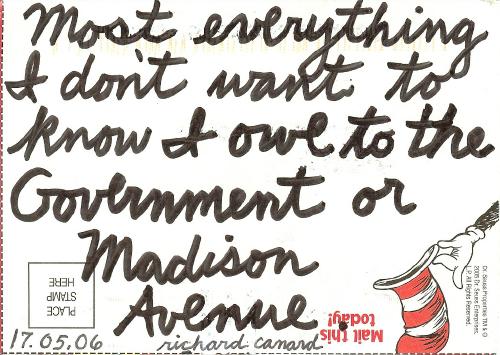 Most everything
I don't want to
know I owe to the
Government or
Madison
Avenue.
PLACE
STAMP
HERE
Mail this
today!
Dr. Seuss Properties TM & ©
2005 Dr. Seuss Enterprises,
L.P. All Rights Reserved.
17.05.06
richard canard